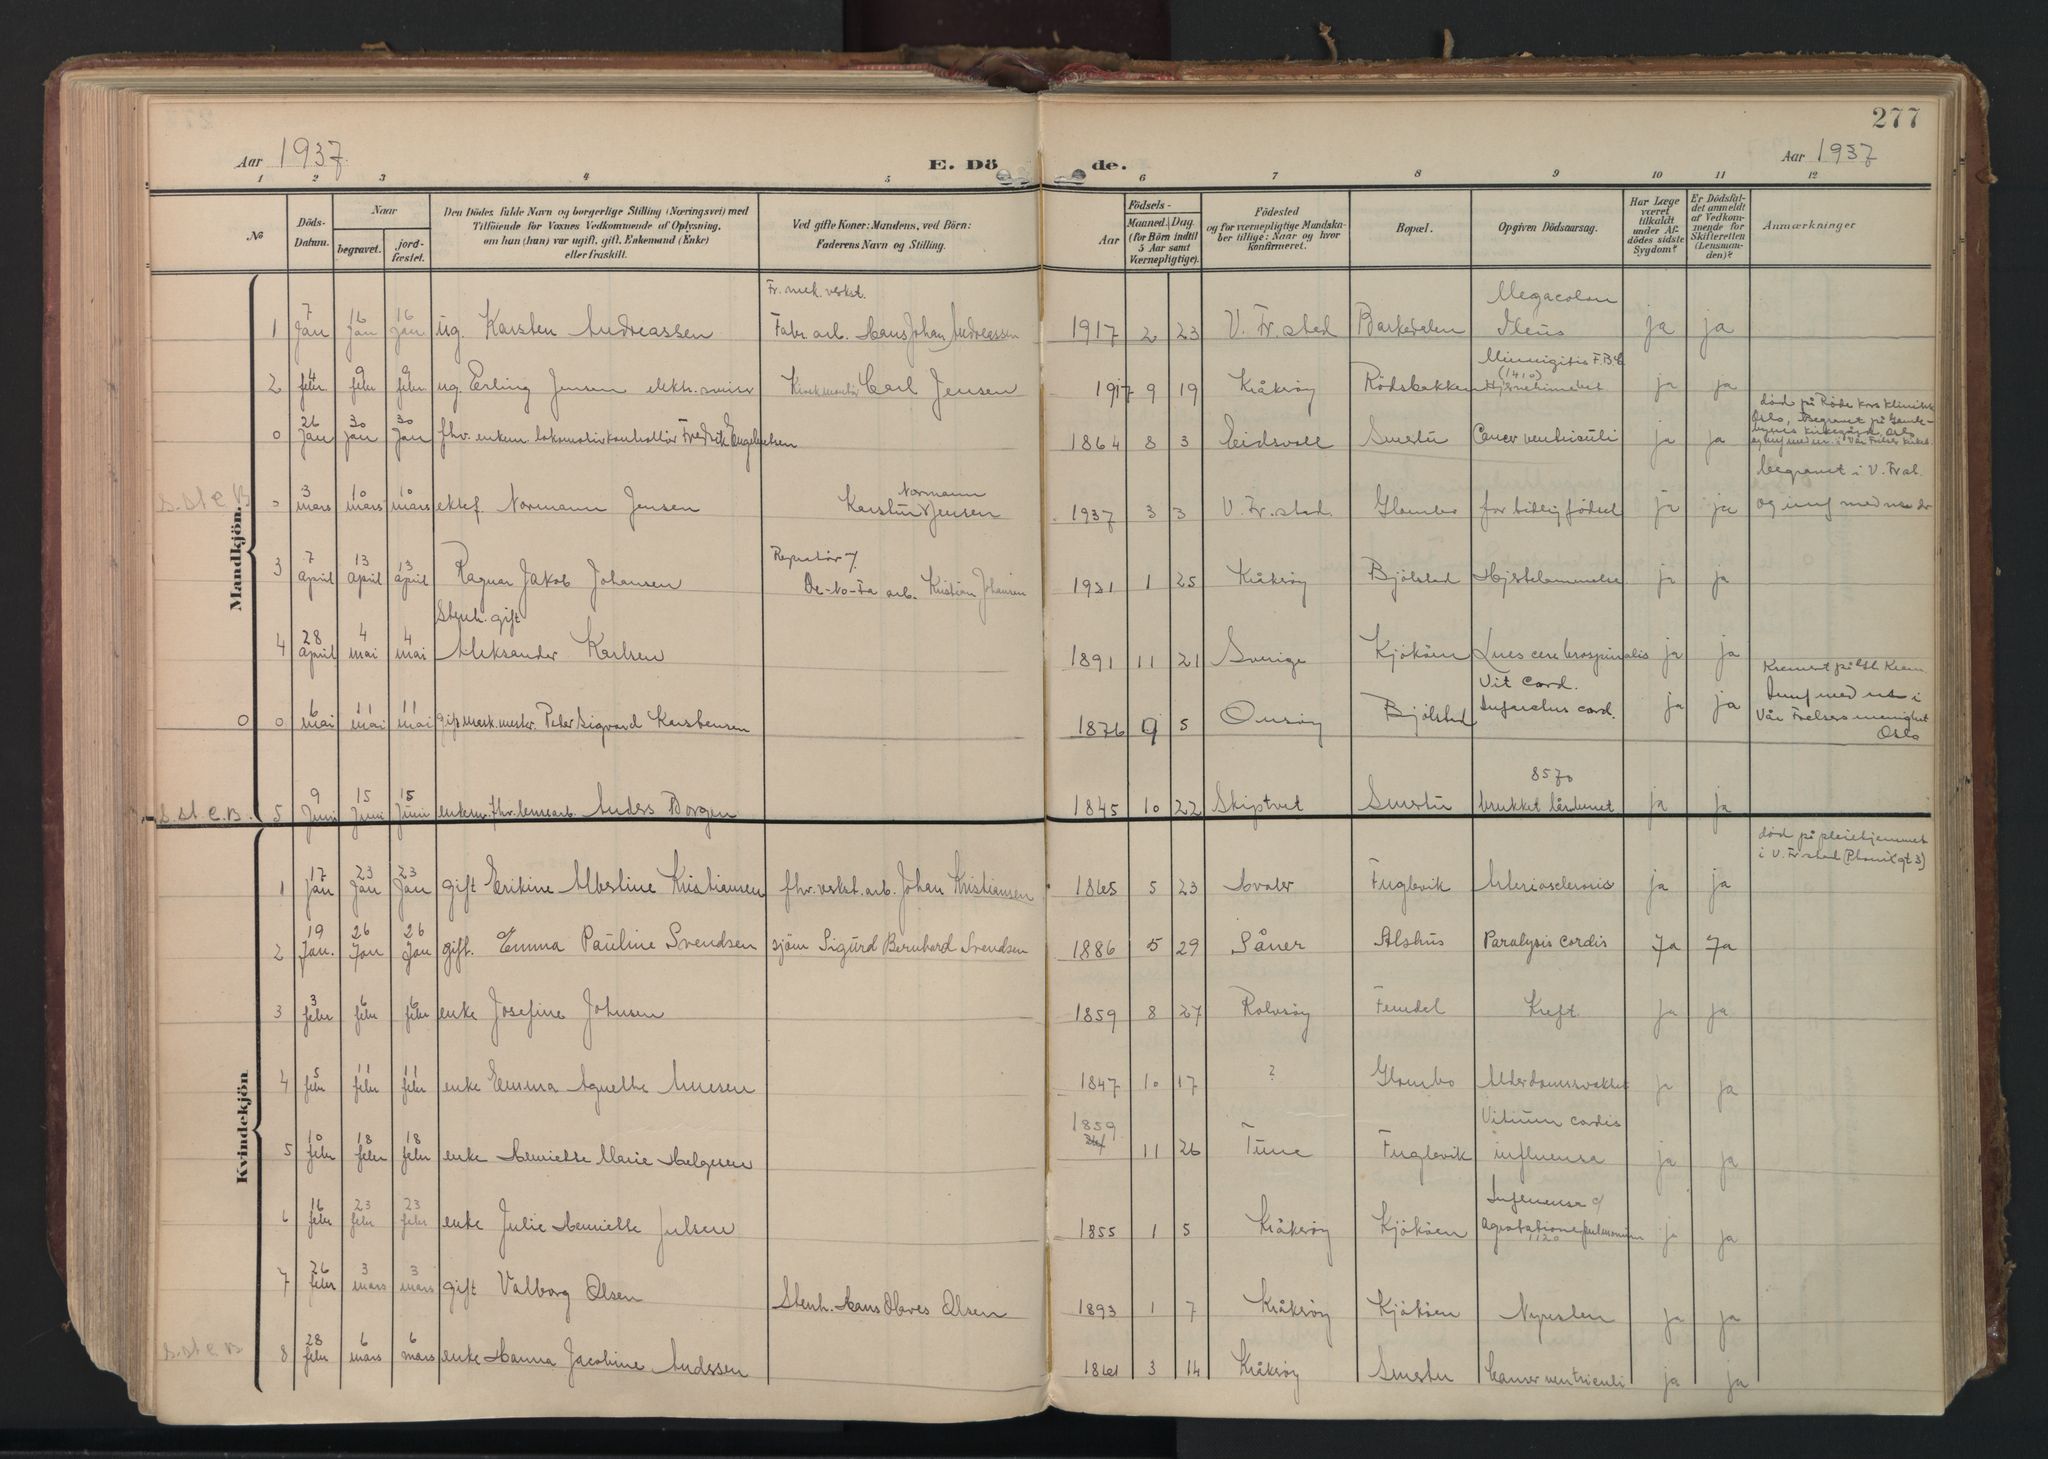 277
Aar 1937.
E. Dö
de.
Aar 1937
1 2 3 4 5 6 7 8 9 10 11 12
No
Döds-Datum.
Naar
begravet.
jordfæstet.
Den Dödes fulde Navn og borgerlige Stilling (Næringsvei) med
Tilföiende for Voxnes Vedkommende af Oplysning,
om hun (han) var ugift, gift, Enkemand (Enke)
eller fraskilt.
Ved gifte Koner: Mandens, ved Börn:
Faderens Navn og Stilling.
Födsels-
Aar
Maaned. Dag.
(for Börn indtil
5 Aar samt
Værnepligtige).
Födested
og for værnepligtige Mandskaber tillige: Naar og hvor
konfirmeret.
Bopæl.
Opgiven Dödsaarsag.
Har Læge
været
tilkaldt
under Afdödes sidste
Sygdom?
Er Dödsfaldet anmeldt
af Vedkommende for
Skifteretten
(Lensmanden)?
Anmærkninger
Mandkjön.
1 7 Jan 16 Jan 16 Jan ug. Karsten Andreassen Fr. mek. verkst. Fabr. arb. Hans Johan Andreassen 1917 2 23 V. Fr. stad Barkedalen Megacolon Ileus ja ja
2 4 febr 9 febr 9 febr ug. Erling Jensen Carl Jensen 1917 9 19 Kråkröy Rödsbakken (1410) ja ja
0 26 Jan 30 Jan 30 Jan fhv. enkem. lokomotivkontrollör Fredrik Engebretsen 1864 8 3 Eidsvoll Smertu Cancer ventriculi ja ja död på Röde kors klinikk Oslo, Begravet på Gamlebyens kirkegård, Oslo
S. st. e. B 3 mars 10 mars 10 mars ektef. Normann Jensen Karstin Normann Jensen 1937 3 3 V. Fr. stad. Glombo for tidlig födsel ja ja begravet i V. Fr st.
3 7 April 13 April 13 April Ragnar Jakob Johansen De-No-Fa arb. Kristian Johansen 1931 1 25 Kråkröy Bjölstad Hjertelammelse ja ja
4 28 April 4 mai 4 mai Stenh. gift Aleksander Karlsen 1891 11 21 Sverige Kjököen Lues cerebrospinalis ja ja
0 0 6 mai 11 mai 11 mai gift Peter Sigvard Karstensen 1876 9 5 Onsöy Bjölstad Vit cord. Infarctus cord. ja ja Vår Frelsers menighet Oslo
S. st. e. B. 5 9 Juni 15 Juni 15 Juni enkem. fhv. Anders Borgen 1845 10 22 Skiptvet Smertu 8570 brukket lårbenet ja ja
Kvindekjön
1 17 Jan 23 Jan 23 Jan gift Erikine Albertine Kristiansen fhv. verkst. arb. Johan Kristiansen 1865 5 23 Hvaler Fuglevik Arteriosclerosis ja ja död på pleiehjemmet i V. Fr stad
2 19 Jan. 26 Jan 26 Jan gift. Emma Pauline Svendsen sjöm Sigurd Bernhard Svendsen 1886 5 29 Såner Alshus Paralysis cordis Ja Ja
3 3 febr 6 febr 6 febr enke Josefine Johnsen 1859 8 27 Rolvsöy Femdal Kreft ja ja
4 5 febr 11 febr 11 febr enke Emma Agnethe 1847 10 17 ? Glombo Alderdomssvakhet ja ja
5 10 febr 18 febr 18 febr enke Henriette Marie Helgesen 1859 11 26 Tune Fuglevik Vitium cordis influensa ja ja
6 16 febr 23 febr 23 febr enke Julie Henriette Julsen 1855 1 5 Kråkröy Kjököen Influensa 1120 ja ja
7 26 febr 3 mars 3 mars gift Valborg Olsen Stenh. Hans Olaves Olsen 1893 1 7 Kråkröy Kjököen Nyresten ja ja
S. st. e. B 8 28 febr 6 mars 6 mars enke Hanna Jacobine Anderssen 1861 3 14 Kråkröy Smertu Cancer ventriculi ja ja